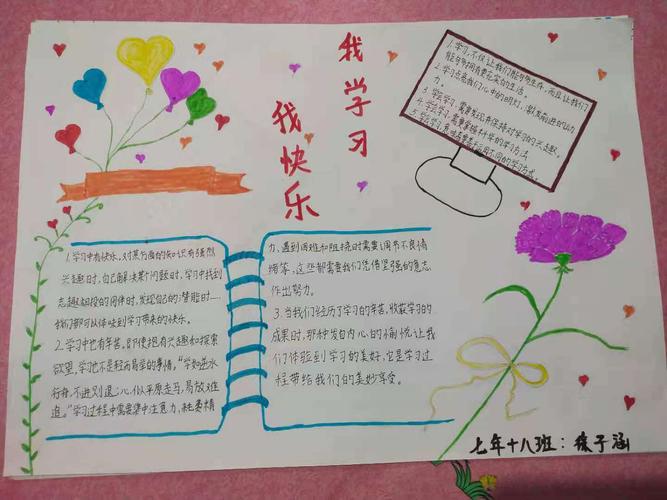 我学习
我快乐
1.学习,不仅让我们能够生存,而且让我们
能够拥有更充实的生活。
2.学习点亮我们心中的明灯,激发前进的动
力。
3.学会学习,需要发现并保持对学习的兴趣。
4.学会学习,需要掌握科学的学习方法
5.学会学习,意味着善于运用不同的学习方式。
1.学习中有快乐。对某方面的知识有强烈
兴趣时,自己解决某个问题时,学习中找到
志趣相投的同伴时,发现自己的潜能时……
我们都可以体味到学习带来的快乐。
2.学习中也有辛苦。即使抱有兴趣和探索
欲望,学习也不是轻而易举的事情。"学如逆水
行舟,不进则退;心似平原走马,易放难
追。"学习过程中需要集中注意力,耗费精
力、遇到困难和阻挠时需要调节不良情
绪等,这些都需要我们凭借坚强的意志
作出努力。
3.当我们经历了学习的辛苦,收获学习的
成果时,那种发自内心的愉悦让我
们体验到学习的美好,它是学习过
程带给我们的美妙享受。
七年十八班:子涵